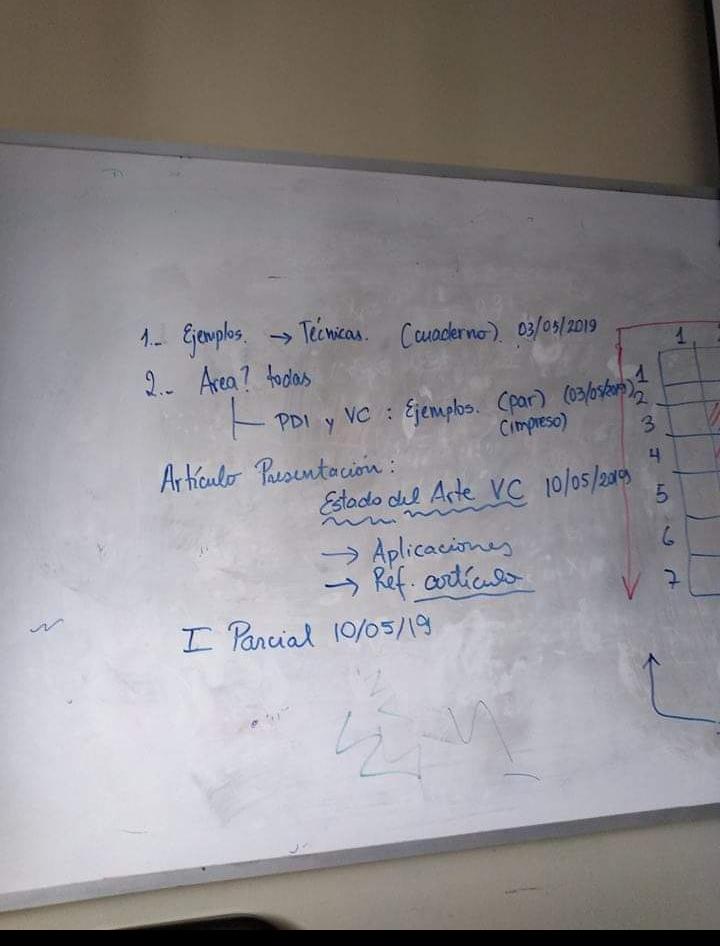 1.- Ejemplos. → Técnicas. (cuaderno). 03/05/2019
2.- Area? todas
PDI y VC : Ejemplos. (par) (03/05/2019)
(impreso)
Artículo Presentación :
Estado del Arte VC 10/05/2019
→ Aplicaciones
→ Ref. artículo
I Parcial 10/05/19
1
1
2
3
4
5
6
7